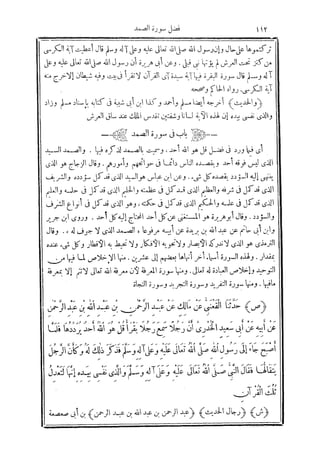 ١١٢ فضل سورة الصمد
تركتموها على حال وإن رسول الله صلى الله تعالى عليه وعلى آله وسلم قال أعطيت آية الكرسى
من كنز تحت العرش لم يؤتها نبى قبلى. وعن أبى هريرة أن رسول الله صلى الله تعالى عليه وعلى
آله وسلم قال سورة البقرة فيها آية سيدة آى القرآن لا تقرأ فى بيت وفيه شيطان إلا خرج منه
آية الكرسى. رواه الحاكم وصححه
﴿والحديث﴾ أخرجه أيضا مسلم وأحمد وكذا ابن أبى شيبة فى كتابه بإسناد مسلم وزاد
والذى نفسى بيده إن لهذه الآية لسانا وشفتين تقدس الملك عند ساق العرش
باب فى سورة الصمد
أى فيما ورد فى فضل قل هو الله أحد. وسميت بالصمد لذكره فيها. والصمد السيد
الذى ليس فوقه أحد ويقصده الناس دائما فى حوائجهم وأمورهم. وقال الزجاج هو الذى
ينتهى إليه السؤدد بقصده كل شىء. وعن ابن عباس هو السيد الذى قد كمل سؤدده والشريف
الذى قد كمل فى شرفه والعظيم الذى قد كمل فى عظمته والحليم الذى قد كمل فى حلمه والعليم
الذى قد كمل فى علمه والحكيم الذى قد كمل فى حكمته وهو الذى قد كمل فى أنواع الشرف
والسؤدد. وقال أبو هريرة هو المستغنى عن كل أحد المحتاج إليه كل أحد. وروى ابن جرير
وابن أبى حاتم عن عبد الله بن بريدة عن أبيه مرفوعا ، الصمد الذى لا جوف له ،، وقال
الترمذى هو الذى لا تدركه الأبصار ولا تحويه الأفكار ولا تحيط به الأقطار وكل شىء عنده
بمقدار. ولهذه السورة أسماء أخر أنهاها بعضهم إلى عشرين. منها الإخلاص لما فيها من
التوحيد وإخلاص العبادة له تعالى. ومنها سورة المعرفة لأن معرفة الله تعالى لا تتم إلا بمعرفة
مافيها. ومنها سورة التفريد وسورة التجريد وسورة النجاة
﴿ص﴾ حَدَّثَنَا الْقَعْنَبِىُّ عَنْ مَالِكٍ عَنْ عَبْدِ الرَّحْمٰنِ بْنِ عَبْدِ اللهِ بْنِ عَبْدِ الرَّحْمٰنِ
عَنْ أَبِيهِ عَنْ أَبِى سَعِيدٍ الْخُدْرِىِّ أَنَّ رَجُلًا سَمِعَ رَجُلًا يَقْرَأُ قُلْ هُوَ اللهُ أَحَدٌ يُرَدِّدُهَا فَلَمَّا
أَصْبَحَ جَاءَ إِلَى رَسُولِ اللهِ صَلَّى اللهُ تَعَالَى عَلَيْهِ وَعَلَى آلِهِ وَسَلَّمَ فَذَكَرَ ذٰلِكَ لَهُ وَكَأَنَّ الرَّجُلَ
يَتَقَالُّهَا فَقَالَ النَّبِىُّ صَلَّى اللهُ تَعَالَى عَلَيْهِ وَعَلَى آلِهِ وَسَلَّمَ وَالَّذِى نَفْسِى بِيَدِهِ إِنَّهَا لَتَعْدِلُ
ثُلُثَ الْقُرْآنِ
﴿ش﴾ ﴿رجال الحديث﴾ ﴿عبد الرحمن بن عبد الله بن عبد الرحمن﴾ بن أبى صعصعة